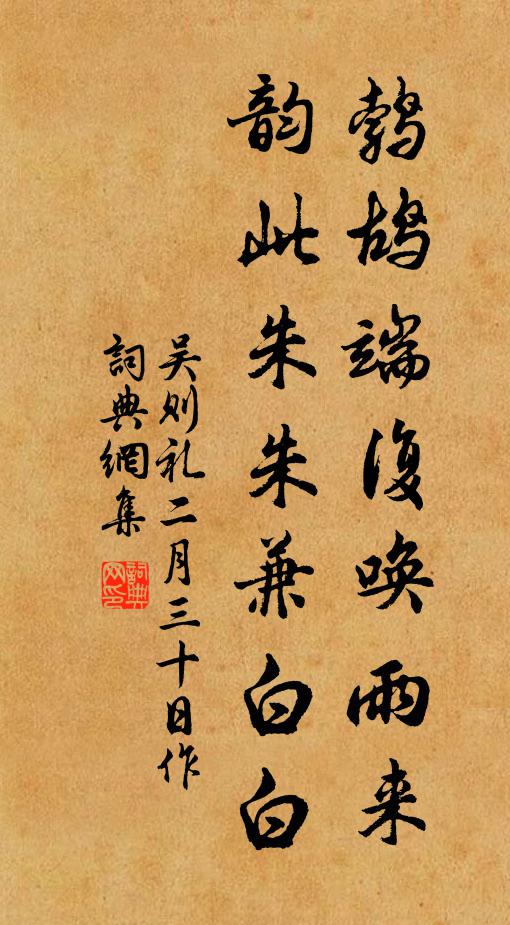 鹁鸪端復唤雨来
韵此朱朱兼白白
吴则礼二月三十日作
詞典網集
詞典网印